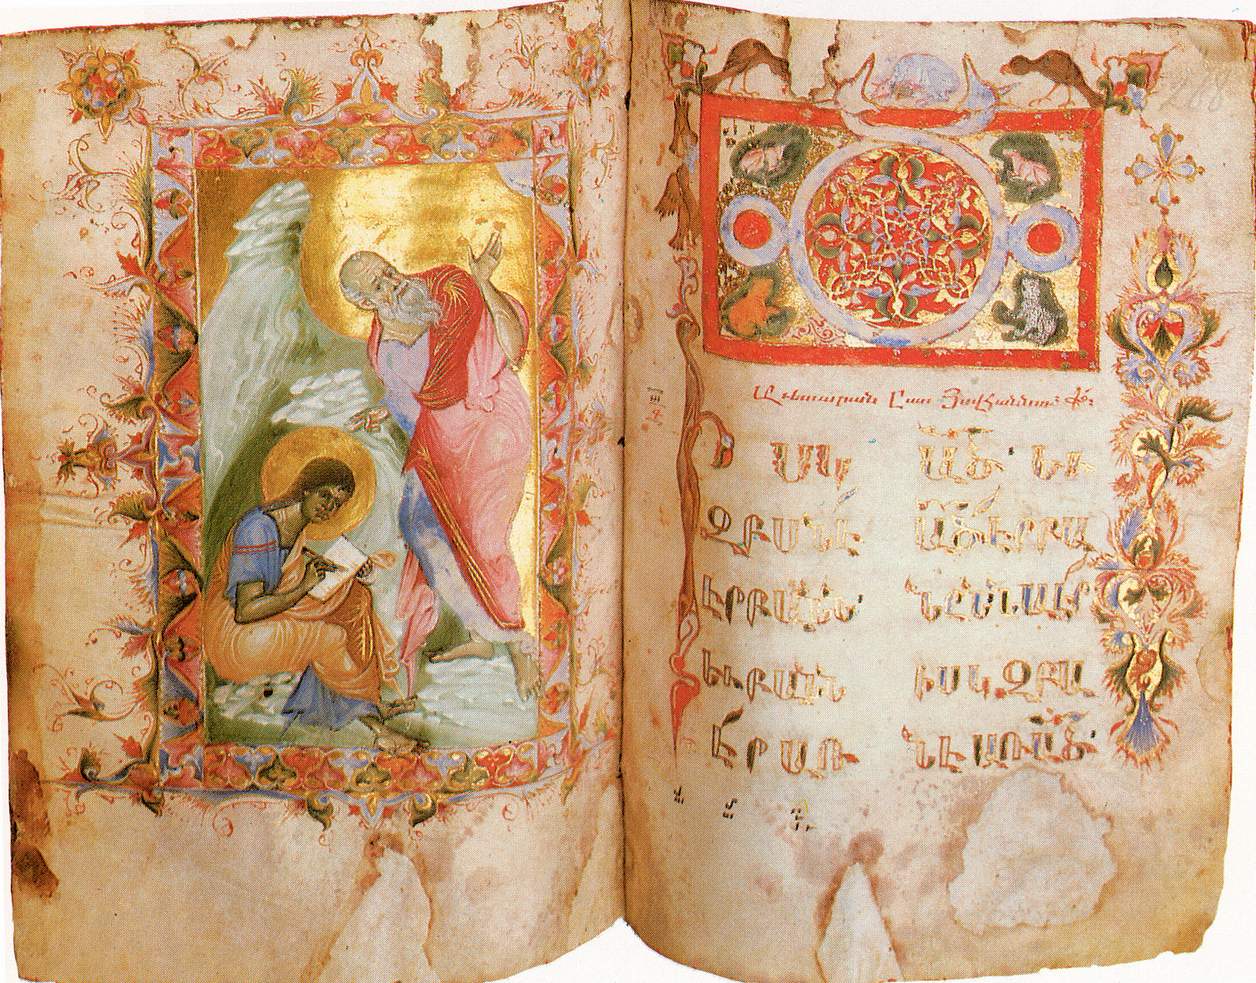 Աւետարան Ըստ Յովհաննու
Ի ՍԿ
ԶԲԱՆԷ
ԷՐԲԱՆՆ·
ԵՒԲԱՆՆ
ԷՐԱՌ
ԱԾ· ԵՒ
ԱԾԷՐԲԱ
ՆՆ· ՆԱԷՐ
ԻՍԿԶԲԱ
ՆԷԱՌԱԾ·